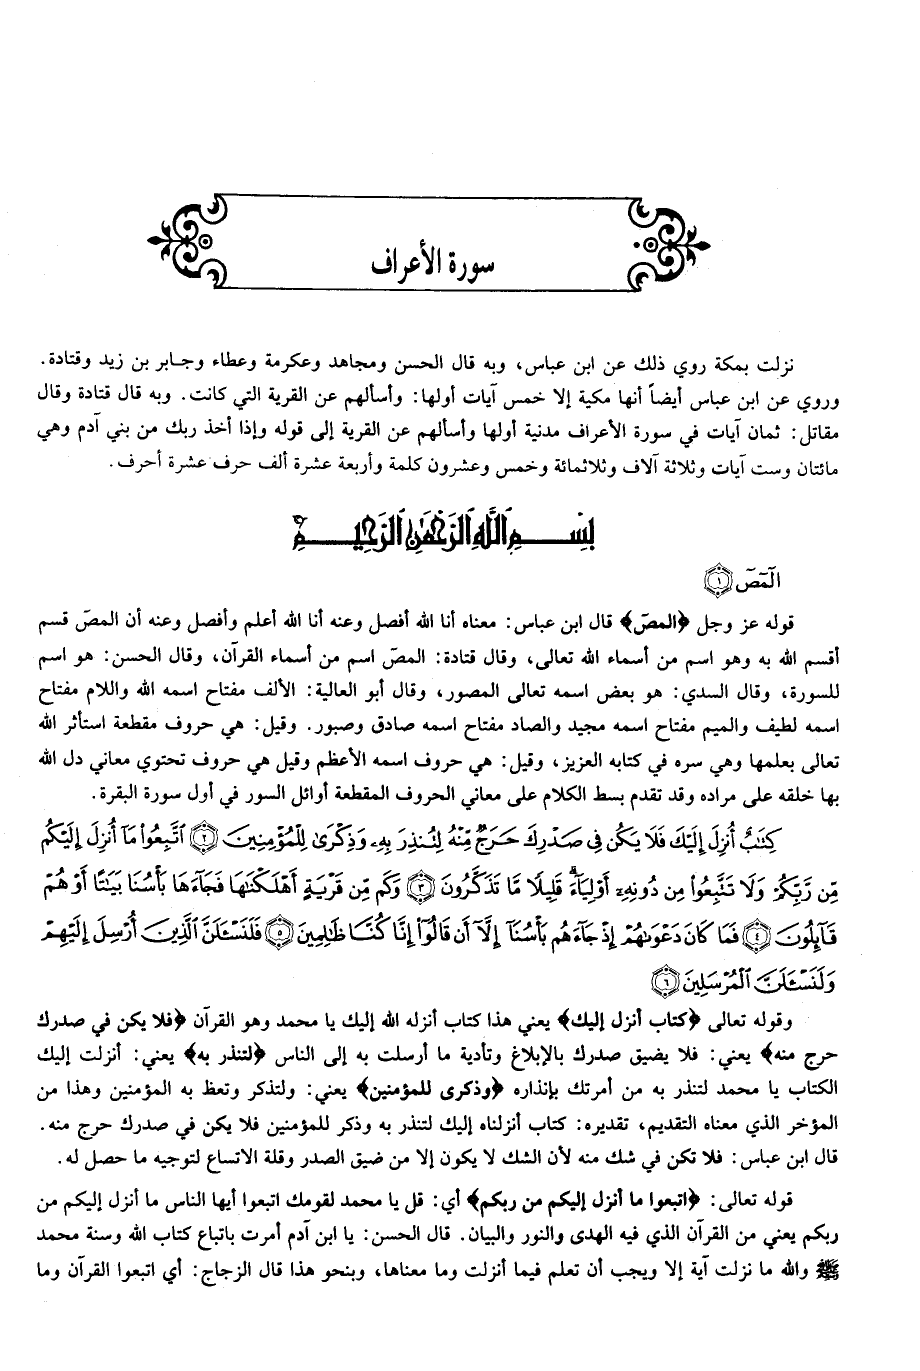 سورة الأعراف
نزلت بمكة روي ذلك عن ابن عباس، وبه قال الحسن ومجاهد وعكرمة وعطاء وجابر بن زيد وقتادة.
وروي عن ابن عباس أيضاً أنها مكية إلا خمس آيات أولها: وأسألهم عن القرية التي كانت. وبه قال قتادة وقال
مقاتل: ثمان آيات في سورة الأعراف مدنية أولها وأسألهم عن القرية إلى قوله وإذا أخذ ربك من بني آدم وهي
مائتان وست آيات وثلاثة آلاف وثلاثمائة وخمس وعشرون كلمة وأربعة عشرة ألف حرف عشرة أحرف.
بِسْمِ ٱللَّهِ ٱلرَّحْمَٰنِ ٱلرَّحِيمِ
الٓمٓصٓ ١
قوله عز وجل ﴿المصۤ﴾ قال ابن عباس: معناه أنا الله أفصل وعنه أنا الله أعلم وأفصل وعنه أن المصۤ قسم
أقسم الله به وهو اسم من أسماء الله تعالى، وقال قتادة: المصۤ اسم من أسماء القرآن، وقال الحسن: هو اسم
للسورة، وقال السدي: هو بعض اسمه تعالى المصور، وقال أبو العالية: الألف مفتاح اسمه الله واللام مفتاح
اسمه لطيف والميم مفتاح اسمه مجيد والصاد مفتاح اسمه صادق وصبور. وقيل: هي حروف مقطعة استأثر الله
تعالى بعلمها وهي سره في كتابه العزيز، وقيل: هي حروف اسمه الأعظم وقيل هي حروف تحتوي معاني دل الله
بها خلقه على مراده وقد تقدم بسط الكلام على معاني الحروف المقطعة أوائل السور في أول سورة البقرة.
كِتَٰبٌ أُنزِلَ إِلَيْكَ فَلَا يَكُن فِى صَدْرِكَ حَرَجٌ مِّنْهُ لِتُنذِرَ بِهِۦ وَذِكْرَىٰ لِلْمُؤْمِنِينَ ٢ ٱتَّبِعُوا۟ مَآ أُنزِلَ إِلَيْكُم
مِّن رَّبِّكُمْ وَلَا تَتَّبِعُوا۟ مِن دُونِهِۦٓ أَوْلِيَآءَ ۗ قَلِيلًا مَّا تَذَكَّرُونَ ٣ وَكَم مِّن قَرْيَةٍ أَهْلَكْنَٰهَا فَجَآءَهَا بَأْسُنَا بَيَٰتًا أَوْ هُمْ
قَآئِلُونَ ٤ فَمَا كَانَ دَعْوَىٰهُمْ إِذْ جَآءَهُم بَأْسُنَآ إِلَّآ أَن قَالُوٓا۟ إِنَّا كُنَّا ظَٰلِمِينَ ٥ فَلَنَسْـَٔلَنَّ ٱلَّذِينَ أُرْسِلَ إِلَيْهِمْ
وَلَنَسْـَٔلَنَّ ٱلْمُرْسَلِينَ ٦
وقوله تعالى ﴿كتاب أنزل إليك﴾ يعني هذا كتاب أنزله الله إليك يا محمد وهو القرآن ﴿فلا يكن في صدرك
حرج منه﴾ يعني: فلا يضيق صدرك بالإبلاغ وتأدية ما أرسلت به إلى الناس ﴿لتنذر به﴾ يعني: أنزلت إليك
الكتاب يا محمد لتنذر به من أمرتك بإنذاره ﴿وذكرى للمؤمنين﴾ يعني: ولتذكر وتعظ به المؤمنين وهذا من
المؤخر الذي معناه التقديم، تقديره: كتاب أنزلناه إليك لتنذر به وذكر للمؤمنين فلا يكن في صدرك حرج منه.
قال ابن عباس: فلا تكن في شك منه لأن الشك لا يكون إلا من ضيق الصدر وقلة الاتساع لتوجيه ما حصل له.
قوله تعالى: ﴿اتبعوا ما أنزل إليكم من ربكم﴾ أي: قل يا محمد لقومك اتبعوا أيها الناس ما أنزل إليكم من
ربكم يعني من القرآن الذي فيه الهدى والنور والبيان. قال الحسن: يا ابن آدم أمرت باتباع كتاب الله وسنة محمد
ﷺ والله ما نزلت آية إلا ويجب أن تعلم فيما أنزلت وما معناها، وبنحو هذا قال الزجاج: أي اتبعوا القرآن وما